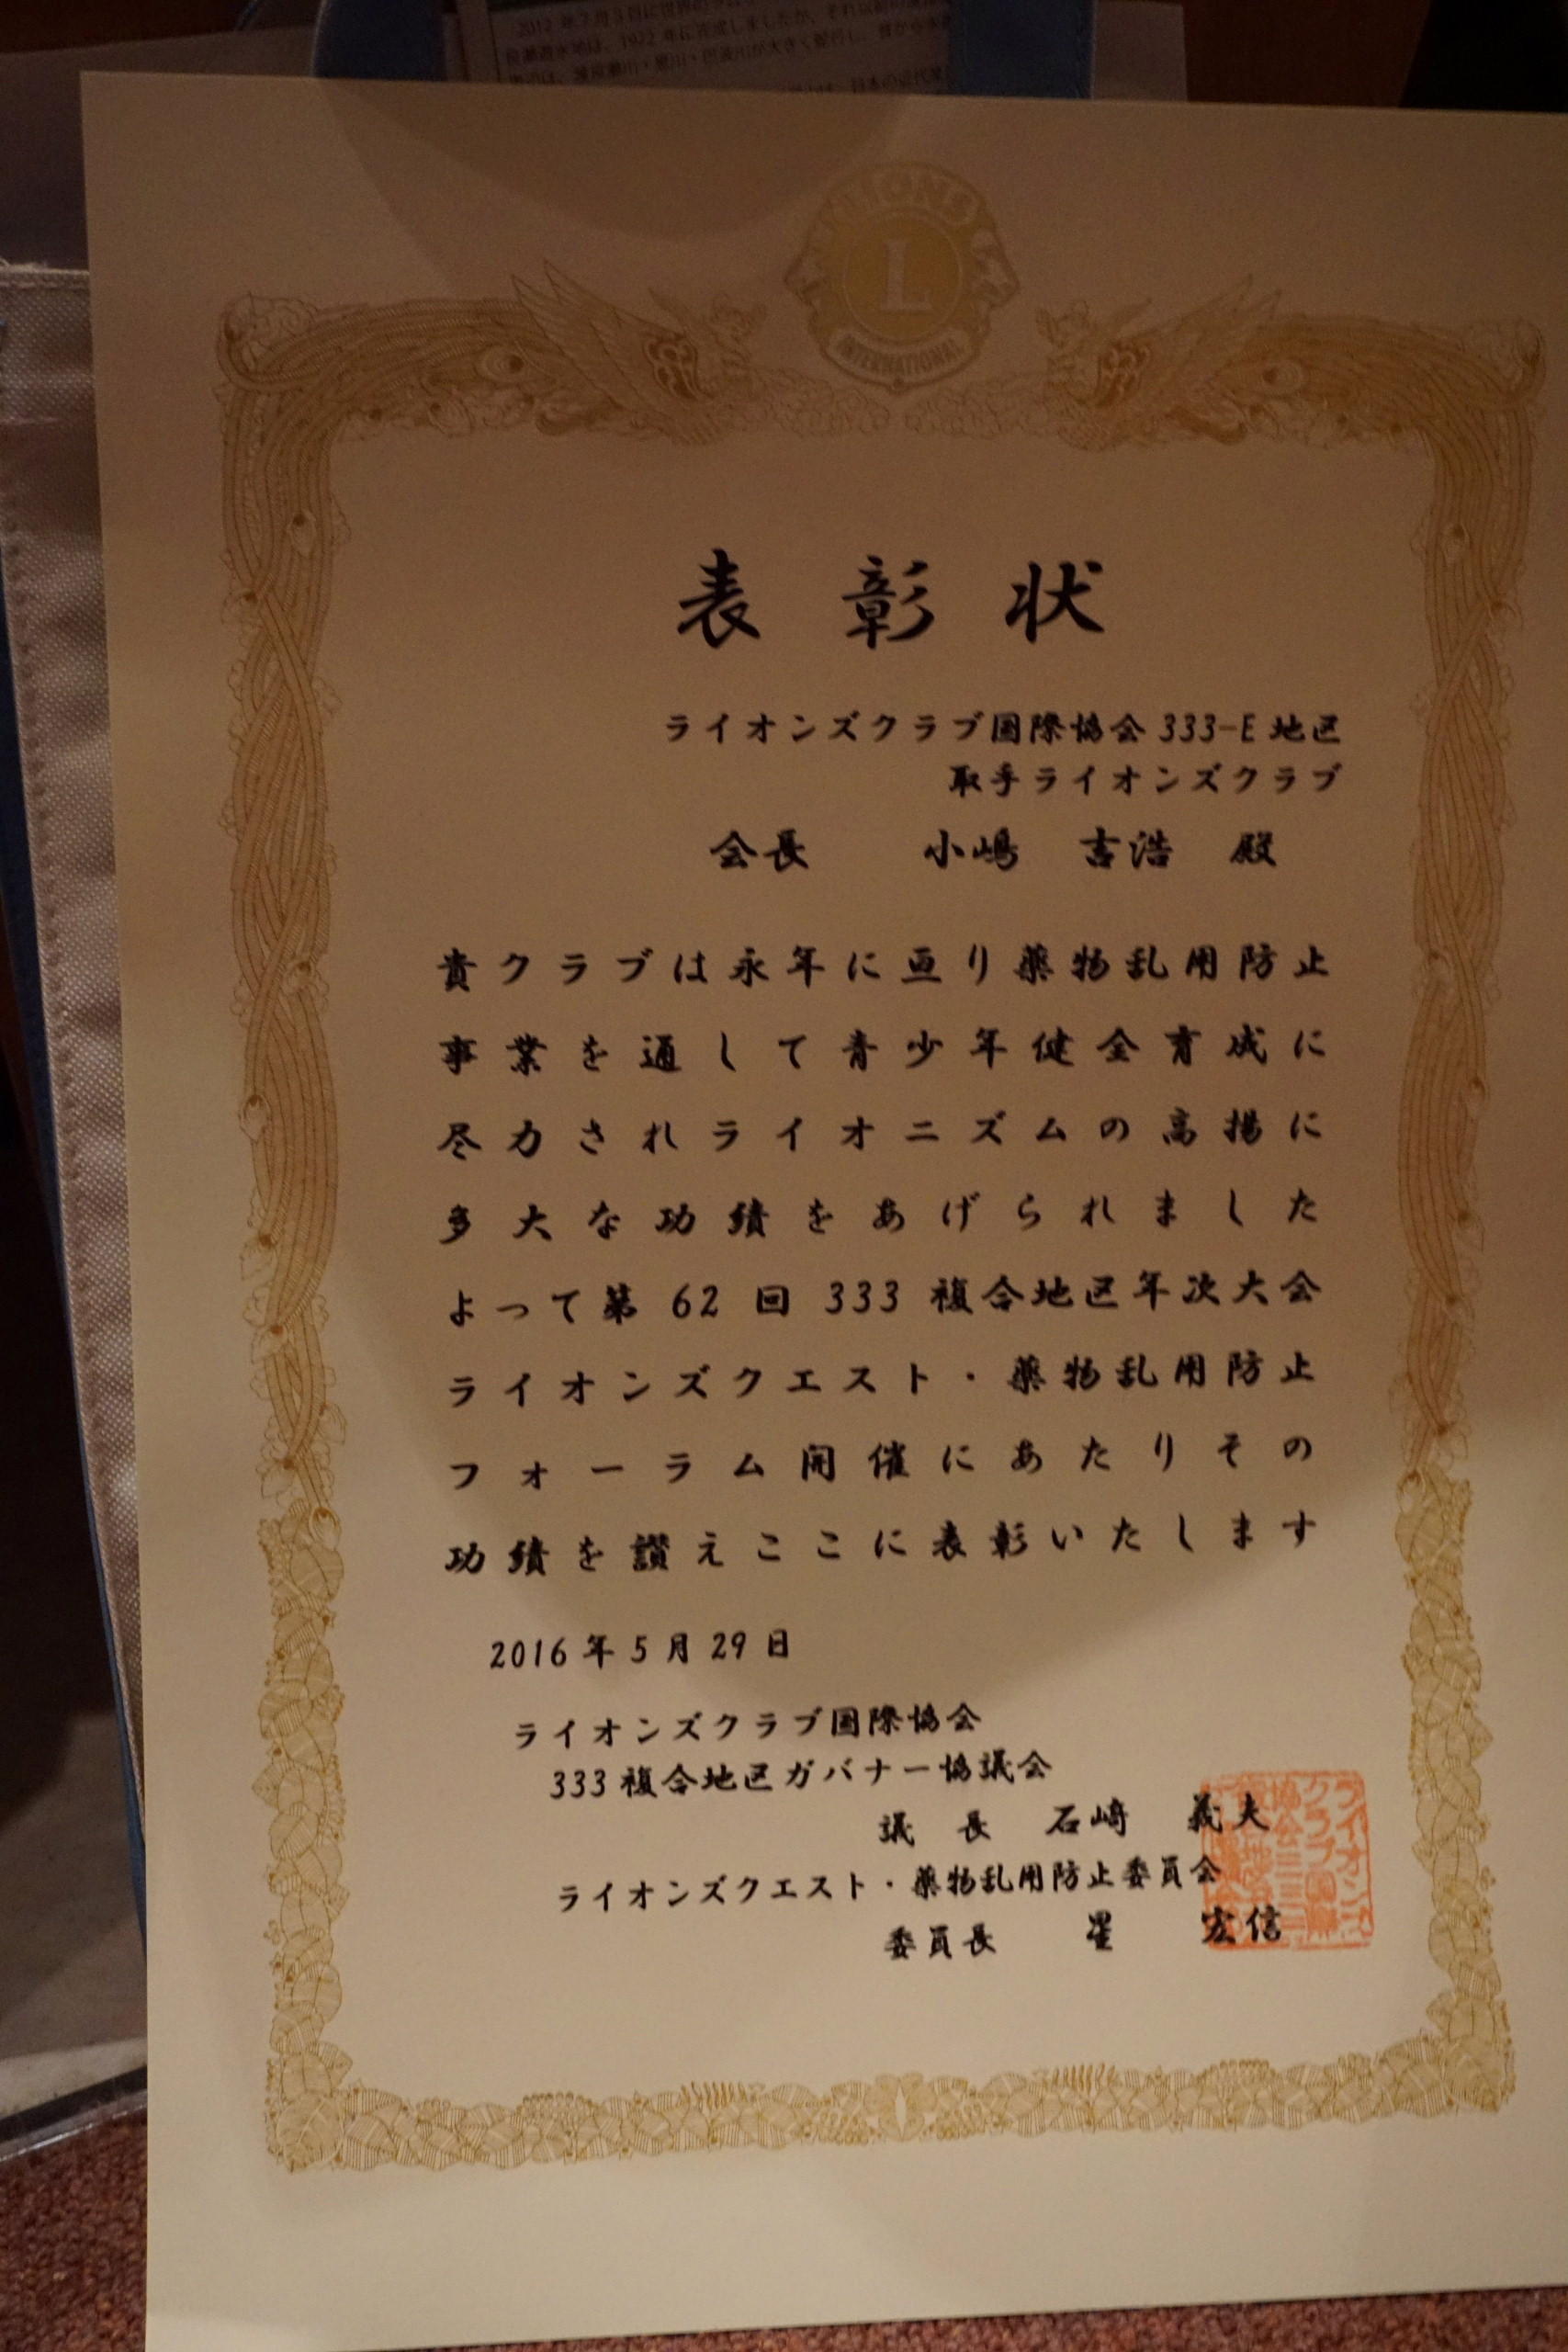 LIONS
L
INTERNATIONAL
表彰状
ライオンズクラブ国際協会 333-E 地区
取手ライオンズクラブ
会長 小嶋 吉浩 殿
貴クラブは永年に亘り薬物乱用防止
事業を通して青少年健全育成に
尽力されライオニズムの高揚に
多大な功績をあげられました
よって第 62 回 333 複合地区年次大会
ライオンズクエスト・薬物乱用防止
フォーラム開催にあたりその
功績を讃えここに表彰いたします
2016 年 5 月 29 日
ライオンズクラブ国際協会
333 複合地区ガバナー協議会
議 長 石﨑 義夫
ライオンズクエスト・薬物乱用防止委員会
委員長 星 宏信